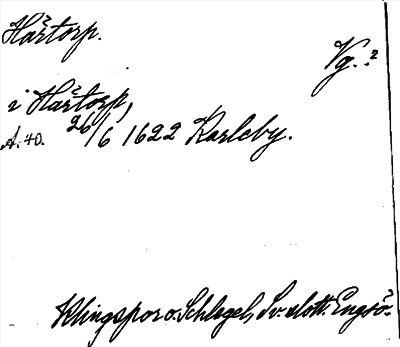 Hårtorp.
Vg. 2
i Hårtorp,
A. 40. 26/6 1622 Karleby.
Klingspor o. Schlegel, Sv. slott. Engsö.